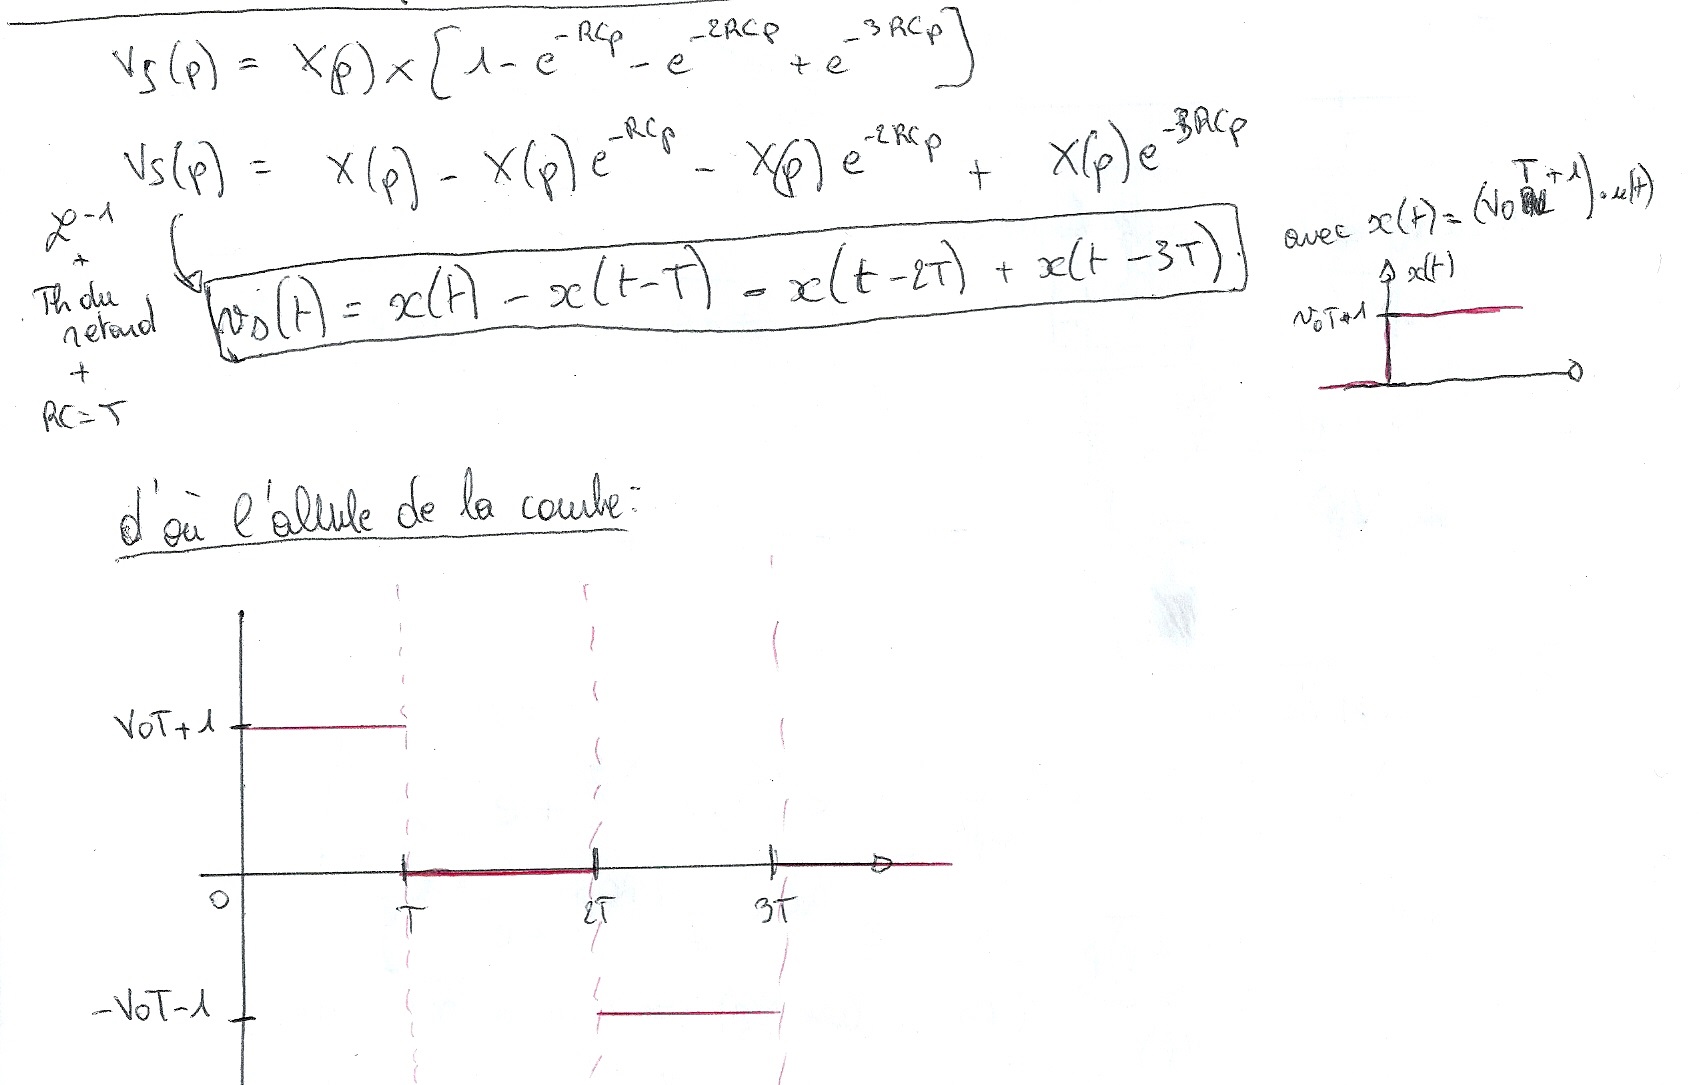 Vs(p) = X(p) × [1 - e^-RCp - e^-2RCp + e^-3RCp]
Vs(p) = X(p) - X(p) e^-RCp - X(p) e^-2RCp + X(p) e^-3RCp
ℒ^-1
+
Th du
retard
+
RC = T
vs(t) = x(t) - x(t-T) - x(t-2T) + x(t-3T)
avec x(t) = (V0T+1).u(t)
x(t)
v0T+1
d'où l'allule de la courbe:
V0T+1
0
T
2T
3T
-V0T-1